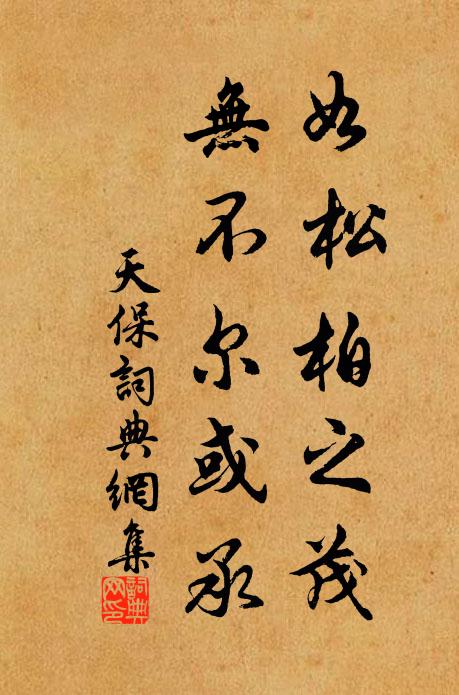 如松柏之茂
無不尔或承
天保詞典網集
詞典
网印